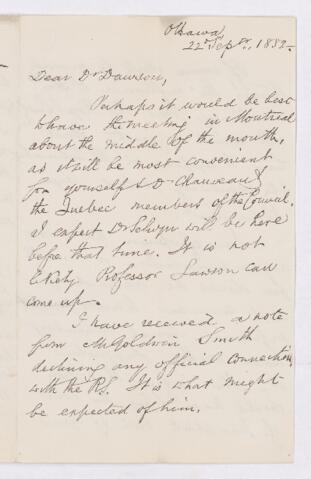 Ottawa,
22 Sepr., 1882.
Dear Dr Dawson,
Perhaps it would be best
to have the meeting in Montreal
about the middle of the month,
as it will be most convenient
for yourself & Dr Chauveau &
the Quebec members of the Council.
I expect Dr Selwyn will be here
before that time. It is not
likely Professor Lawson can
come up.
I have received a note
from Mr Goldwin Smith
declining any official connection
with the R.S. It is what might
be expected of him.